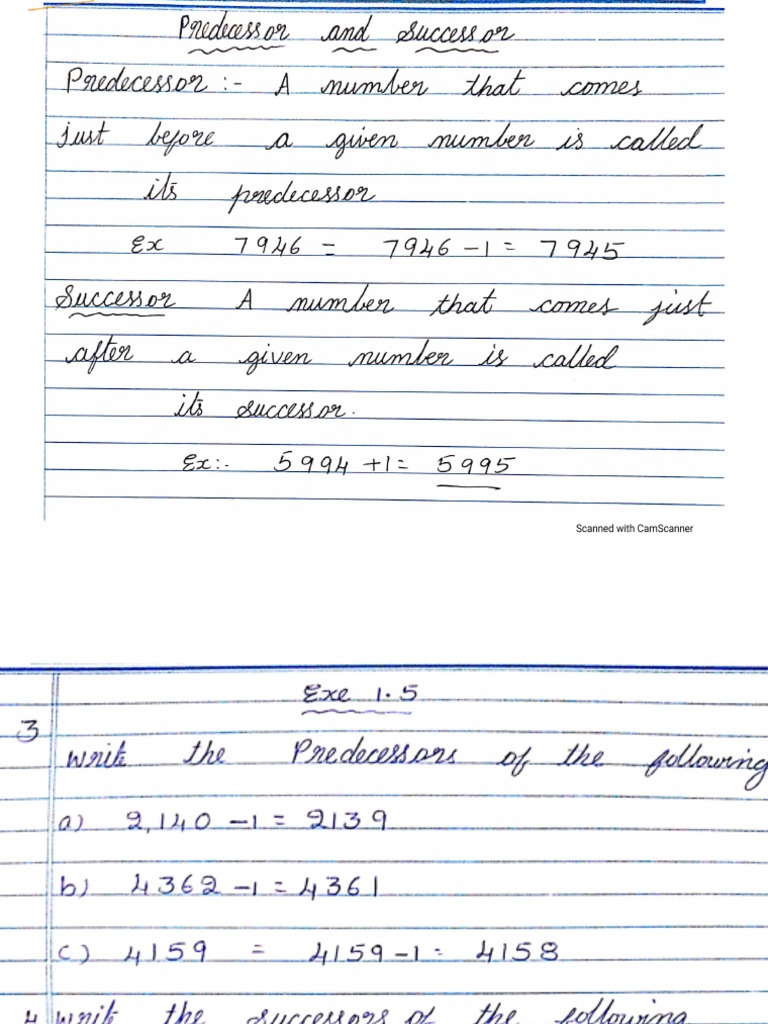 Predecessor and Successor
Predecessor :- A number that comes
just before a given number is called
its predecessor
Ex 7946 = 7946 - 1 = 7945
Successor A number that comes just
after a given number is called
its successor.
Ex:- 5994 + 1 = 5995
Scanned with CamScanner
Exe 1.5
3
Write the Predecessors of the following
a) 2,140 - 1 = 2139
b) 4362 - 1 = 4361
c) 4159 = 4159 - 1 = 4158
4 Write the successors of the following